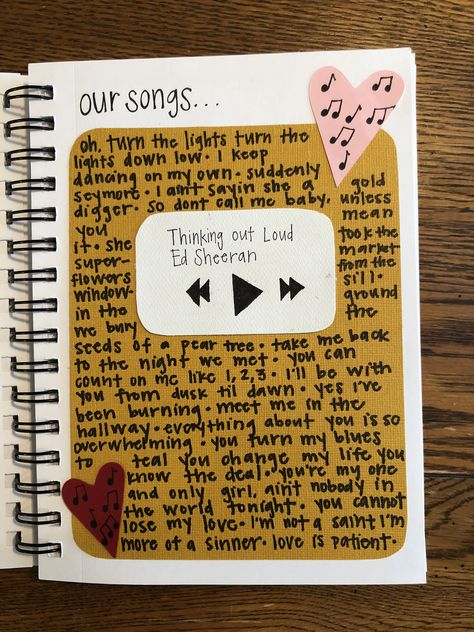 our songs...
oh, turn the lights turn the
lights down low • I keep
dancing on my own • suddenly
seymore • I aint sayin she a gold
digger • so dont call me baby, unless
you mean
it • she took the
super- market
flowers from the
window- sill •
in the ground
we bury the
Thinking out Loud
Ed Sheeran
seeds of a pear tree • take me back
to the night we met • you can
count on me like 1, 2, 3 • I'll be with
you from dusk til dawn • yes i've
been burning • meet me in the
hallway • everything about you is so
overwherming • you turn my blues
to teal you change my life you
know the deal • you're my one
and only girl, aint nobody in
the world tonight • you cannot
lose my love • I'm not a saint I'm
more of a sinner • love is patient •